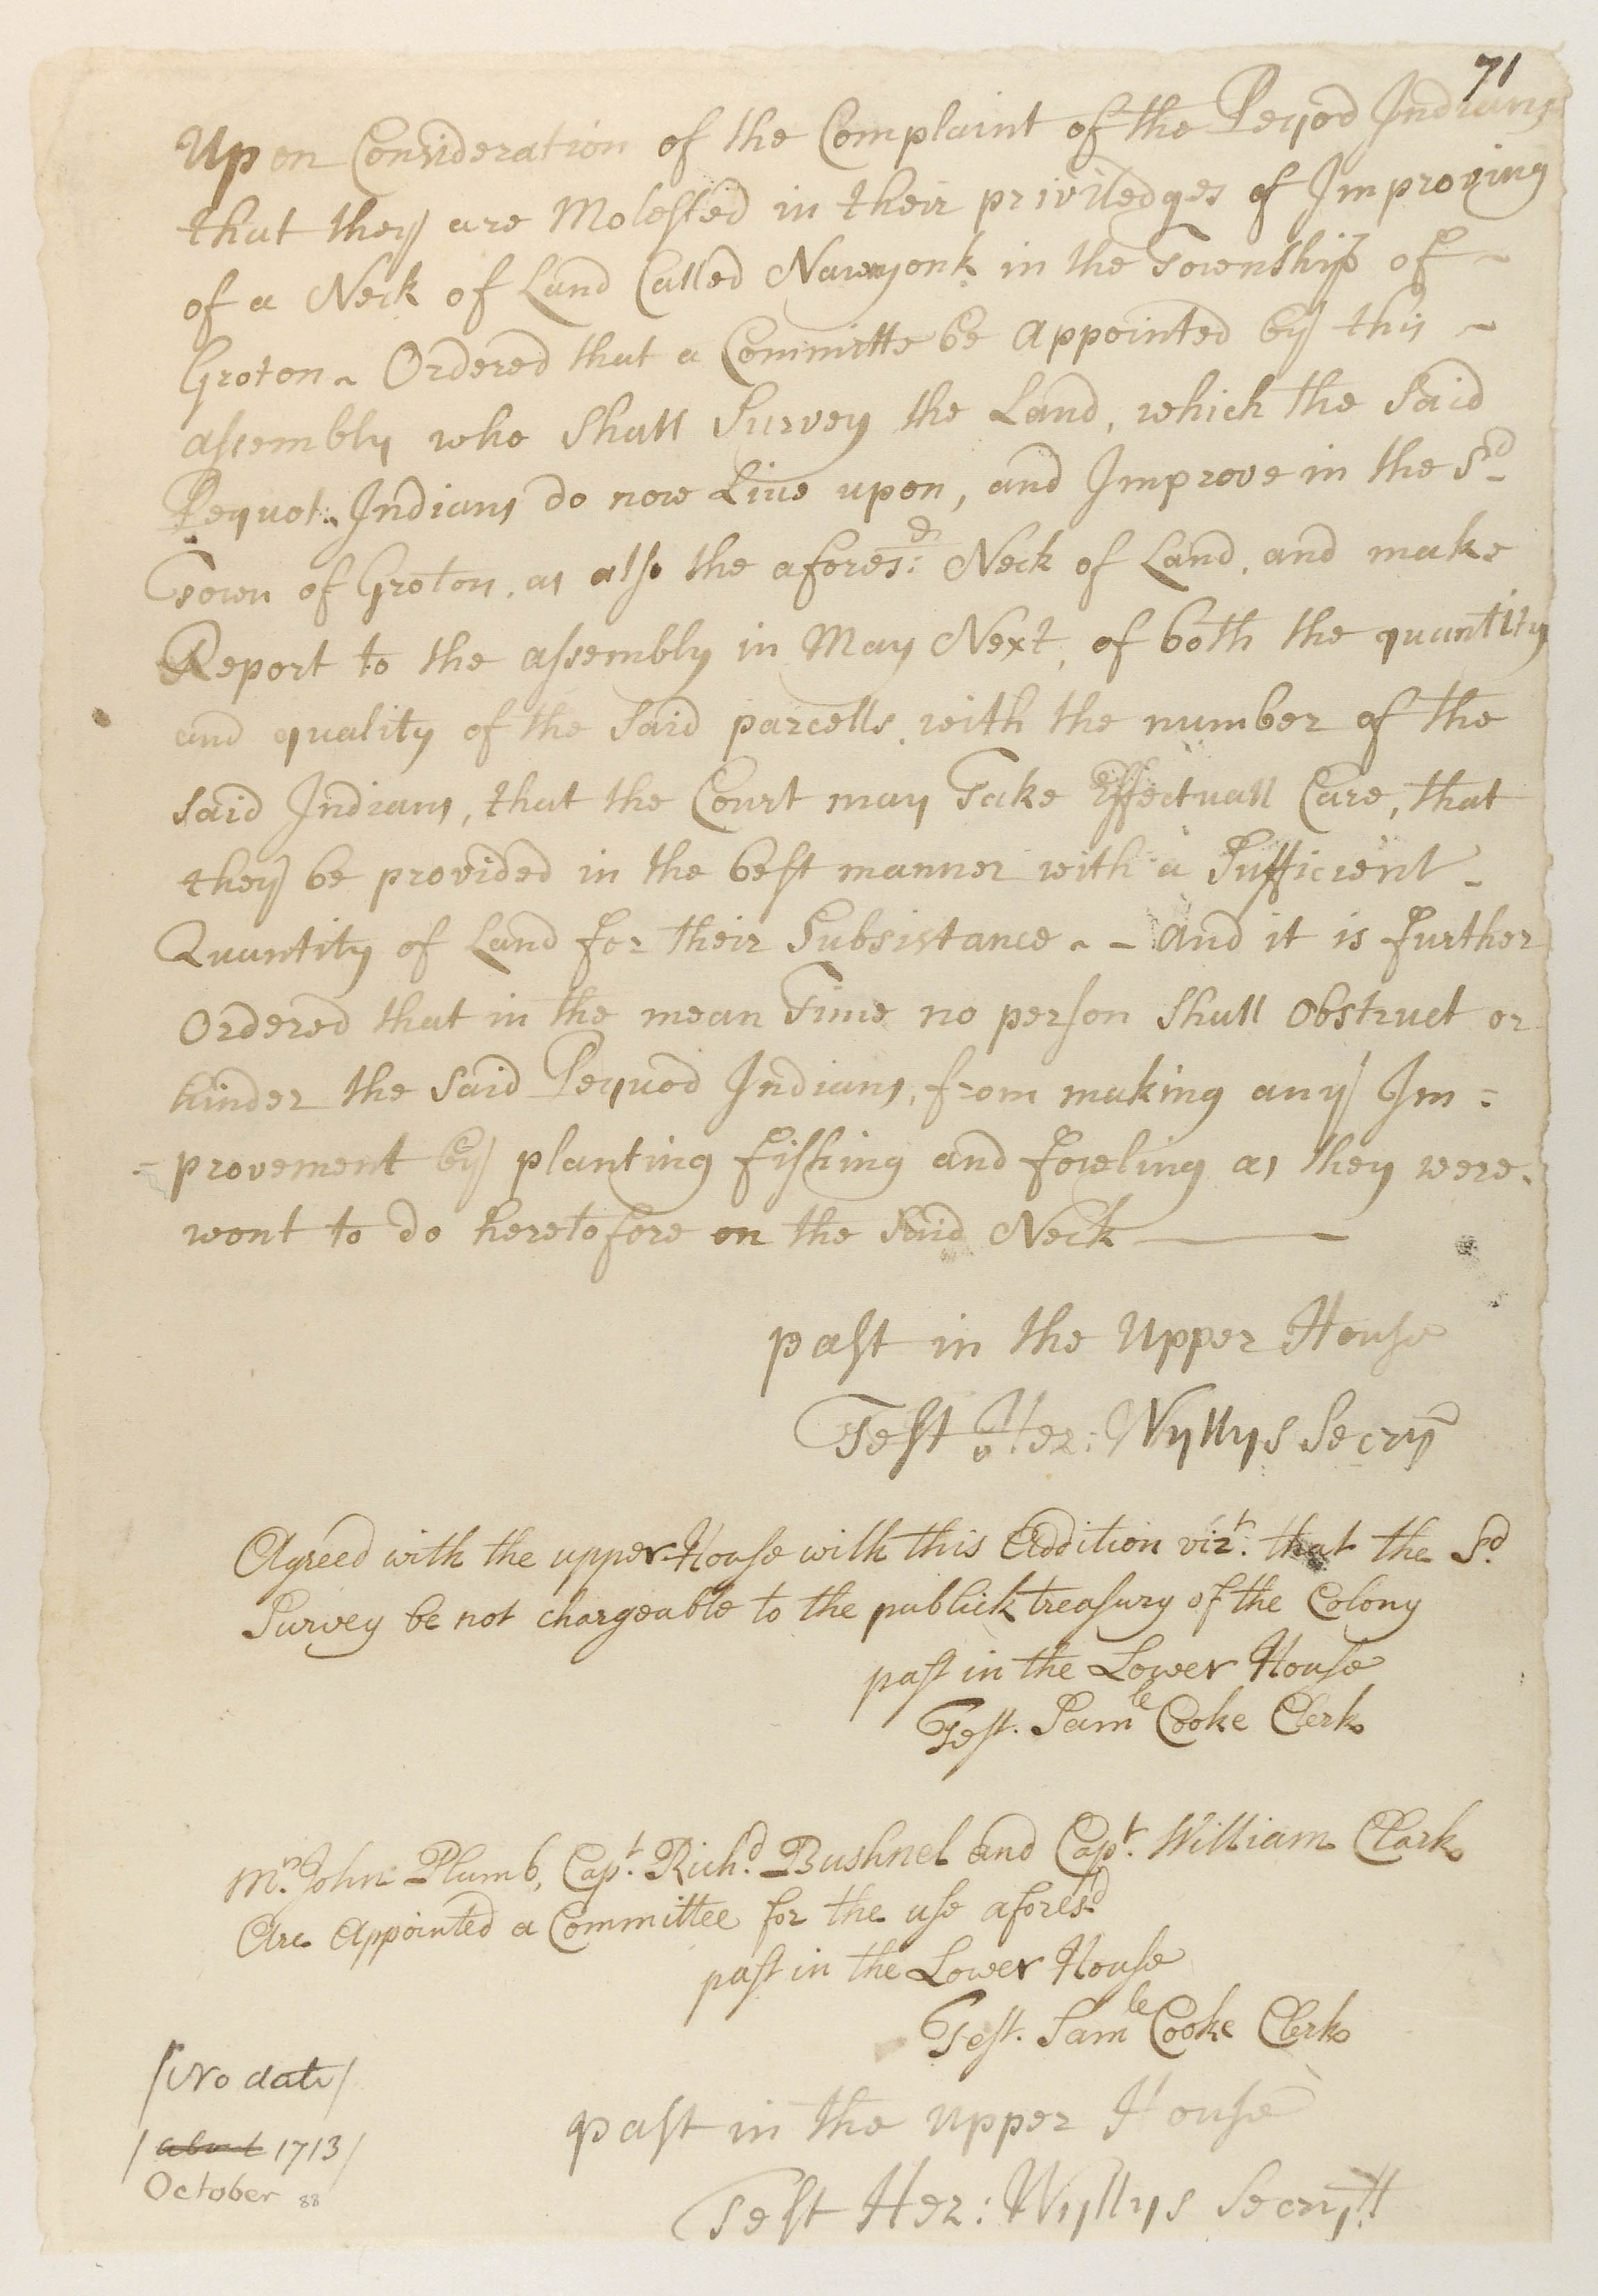 71
Upon Consideration of the Complaint of the Peqod Indians
that they are Molested in their priviledges of Improving
of a Neck of Land Called Nawayonk in the Township of ~
Groton ~ Ordered that a Committe be appointed by this ~
assembly who Shall Survey the Land, which the Said
Pequot Indians do now Live upon, and Improve in the Sd
Town of Groton, as also the aforesd: Neck of Land, and make
Report to the assembly in May Next, of both the quantity
and quality of the Said parcells, with the number of the
said Indians, that the Court may Take Effectuall Care, that
they be provided in the best manner with a Sufficient -
Quantity of Land for their Subsistance ~ - and it is further
Ordered that in the mean Time no person Shall Obstruct or
hinder the Said Pequod Indians, from making any Im =
= provement by planting fishing and fowling as they were
wont to do heretofore on the Said Neck ———
past in the Upper House
Test Hez: Wyllys Secry
Agreed with the upper House with this Addition vizt: that the Sd
Survey be not chargeable to the publick treasury of the Colony
past in the Lower House
Test. Samle Cooke Clerk
Mr. John Plumb, Capt. Richd. Bushnel and Capt. William Clark
Are Appointed a Committee for the use aforesd
past in the Lower House
Test. Samle Cooke Clerk
/No date/
past in the upper House
/about 1713/
October 88
Test Hez: Wyllys Secry